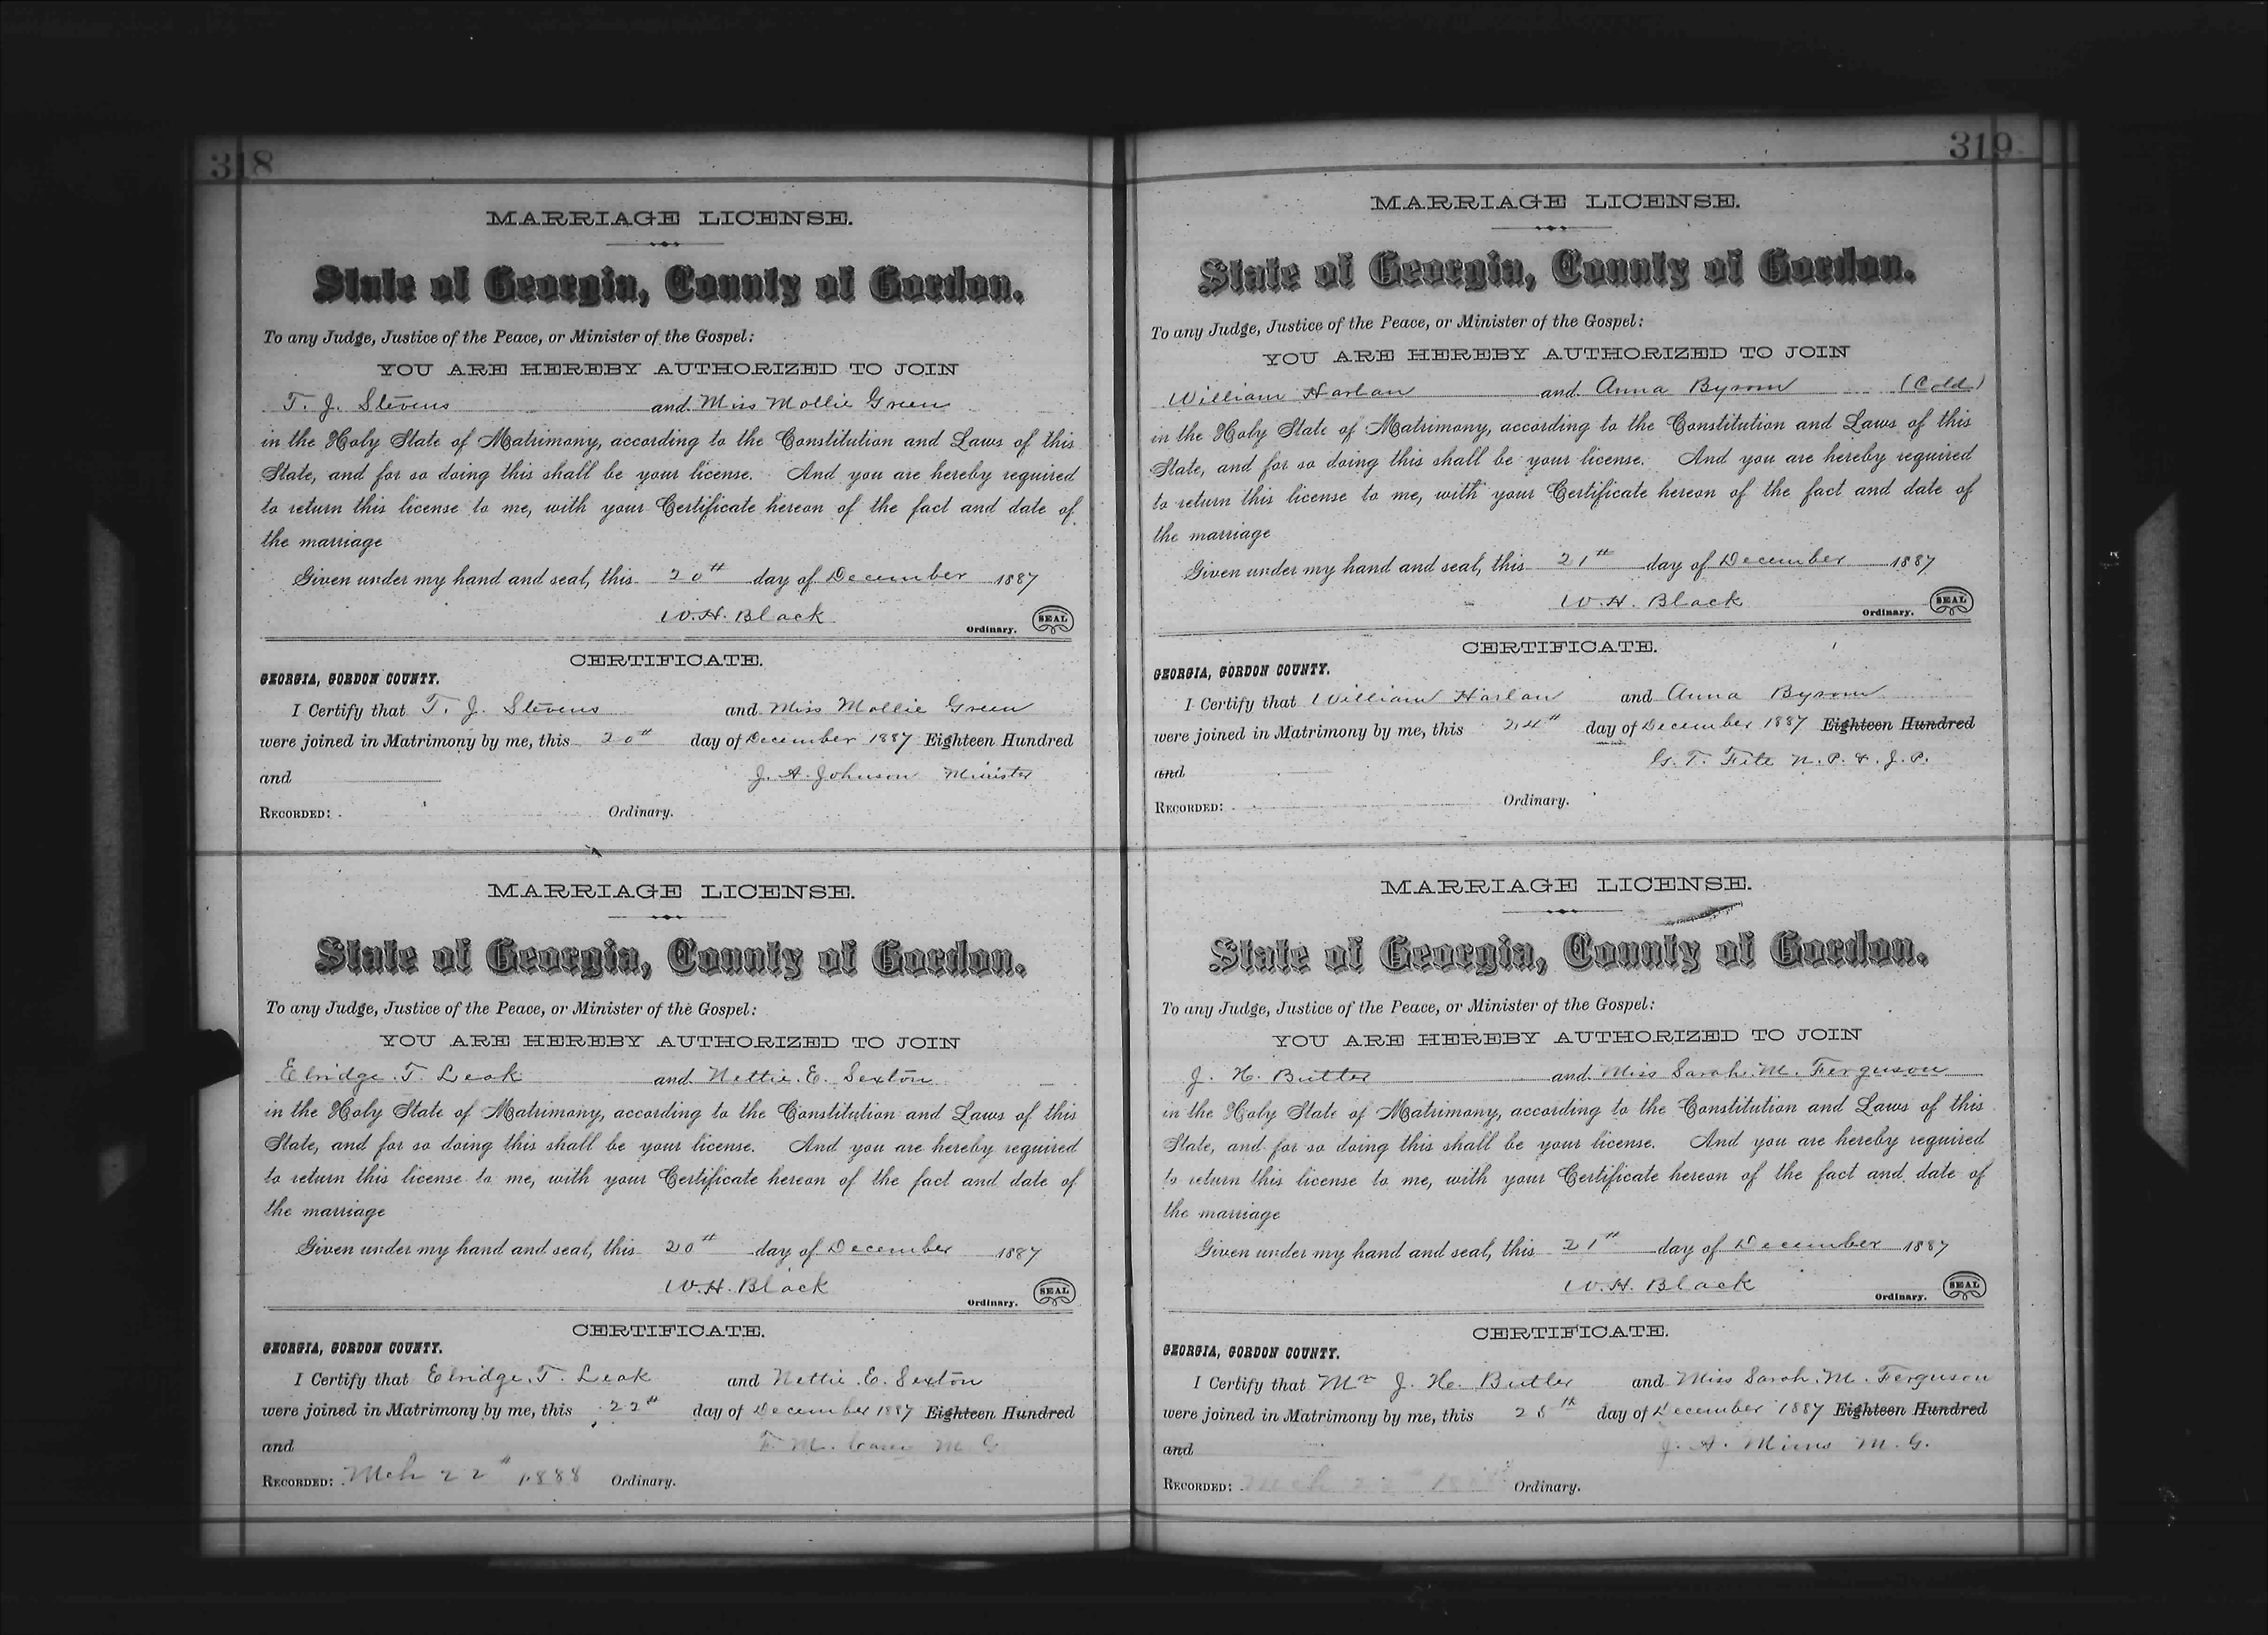 318
MARRIAGE LICENSE.
State of Georgia, County of Gordon.
To any Judge, Justice of the Peace, or Minister of the Gospel:
YOU ARE HEREBY AUTHORIZED TO JOIN
T. J. Stevens and Miss Mollie Green
in the Holy State of Matrimony, according to the Constitution and Laws of this
State, and for so doing this shall be your license. And you are hereby required
to return this license to me, with your Certificate hereon of the fact and date of
the marriage
Given under my hand and seal, this 20th day of December 1887
W. H. Black
Ordinary. SEAL
CERTIFICATE.
GEORGIA, GORDON COUNTY.
I Certify that T. J. Stevens and Miss Mollie Green
were joined in Matrimony by me, this 20th day of December 1887 Eighteen Hundred
and J. A. Johnson Minister
RECORDED: Ordinary.
MARRIAGE LICENSE.
State of Georgia, County of Gordon.
To any Judge, Justice of the Peace, or Minister of the Gospel:
YOU ARE HEREBY AUTHORIZED TO JOIN
Elridge T. Leak and Nettie E. Sexton
in the Holy State of Matrimony, according to the Constitution and Laws of this
State, and for so doing this shall be your license. And you are hereby required
to return this license to me, with your Certificate hereon of the fact and date of
the marriage
Given under my hand and seal, this 20th day of December 1887
W. H. Black
Ordinary. SEAL
CERTIFICATE.
GEORGIA, GORDON COUNTY.
I Certify that Elridge T. Leak and Nettie E. Sexton
were joined in Matrimony by me, this 22th day of December 1887 Eighteen Hundred
and M. G
RECORDED: Mch 22th 1888 Ordinary.
319
MARRIAGE LICENSE.
State of Georgia, County of Gordon.
To any Judge, Justice of the Peace, or Minister of the Gospel:
YOU ARE HEREBY AUTHORIZED TO JOIN
William Harlan and Anna Byrom (Cold)
in the Holy State of Matrimony, according to the Constitution and Laws of this
State, and for so doing this shall be your license. And you are hereby required
to return this license to me, with your Certificate hereon of the fact and date of
the marriage
Given under my hand and seal, this 21th day of December 1887
W. H. Black
Ordinary. SEAL
CERTIFICATE.
GEORGIA, GORDON COUNTY.
I Certify that William Harlan and Anna Byrom
were joined in Matrimony by me, this 24th day of December 1887 Eighteen Hundred
and G. T. Fite N. P. & J. P.
RECORDED: Ordinary.
MARRIAGE LICENSE.
State of Georgia, County of Gordon.
To any Judge, Justice of the Peace, or Minister of the Gospel:
YOU ARE HEREBY AUTHORIZED TO JOIN
J. H. Butler and Miss Sarah M. Ferguson
in the Holy State of Matrimony, according to the Constitution and Laws of this
State, and for so doing this shall be your license. And you are hereby required
to return this license to me, with your Certificate hereon of the fact and date of
the marriage
Given under my hand and seal, this 21th day of December 1887
W. H. Black
Ordinary. SEAL
CERTIFICATE.
GEORGIA, GORDON COUNTY.
I Certify that Mr J. H. Butler and Miss Sarah M. Ferguson
were joined in Matrimony by me, this 25th day of December 1887 Eighteen Hundred
and J. A. Mims M. G.
RECORDED: Mch 22th Ordinary.